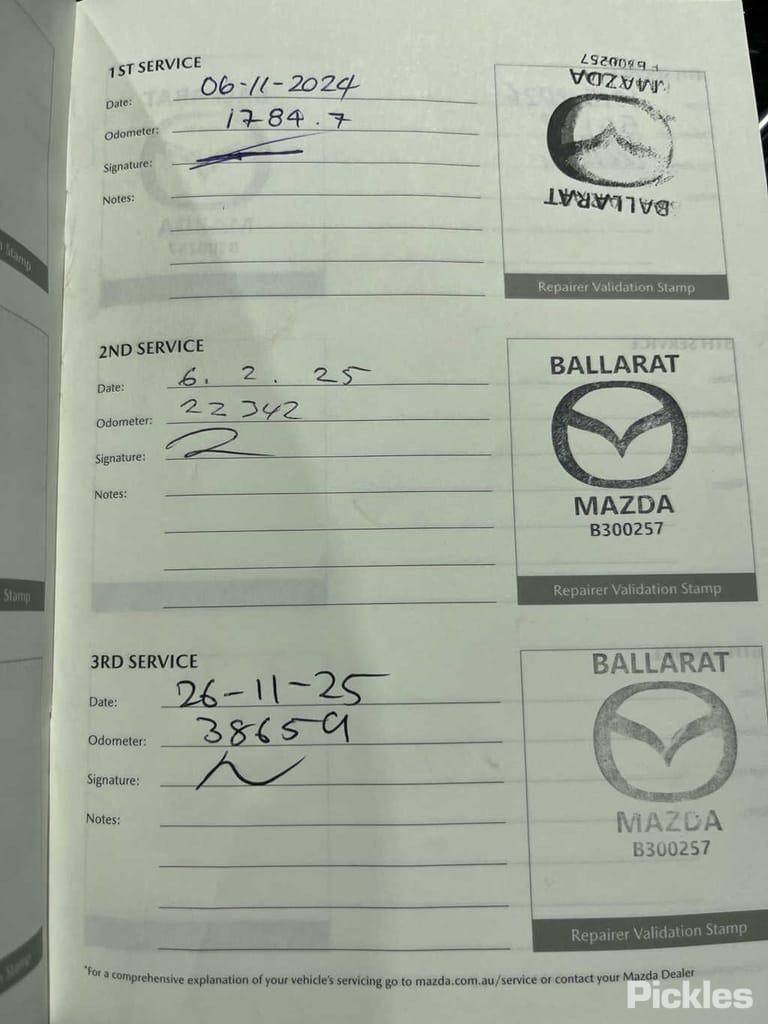 1ST SERVICE
Date: 06-11-2024
Odometer: 1784.7
Signature:
Notes:
B300257
MAZDA
BALLARAT
Repairer Validation Stamp
2ND SERVICE
Date: 6. 2. 25
Odometer: 22342
Signature:
Notes:
BALLARAT
MAZDA
B300257
Repairer Validation Stamp
Stamp
3RD SERVICE
Date: 26-11-25
Odometer: 38659
Signature:
Notes:
BALLARAT
MAZDA
B300257
Repairer Validation Stamp
*For a comprehensive explanation of your vehicle's servicing go to mazda.com.au/service or contact your Mazda Dealer
Pickles